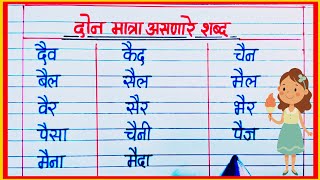 दोन मात्रा असणारे शब्द
दैव कैद चैन
बैल सैल मैल
वैर सैर भैर
पैसा चैनी पैज
मैना मैदा